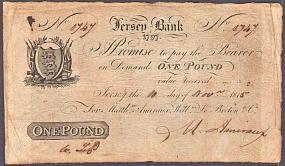 No. 1747 Jersey Bank No. 1747
1797.
I Promise to pay the Bearer
on Demand ONE POUND
value received
Jersey the 10 day of Novr. 1815
For Matthw. Amiraux, Willm. Le Breton & Co.
ONE POUND
M. Amiraux